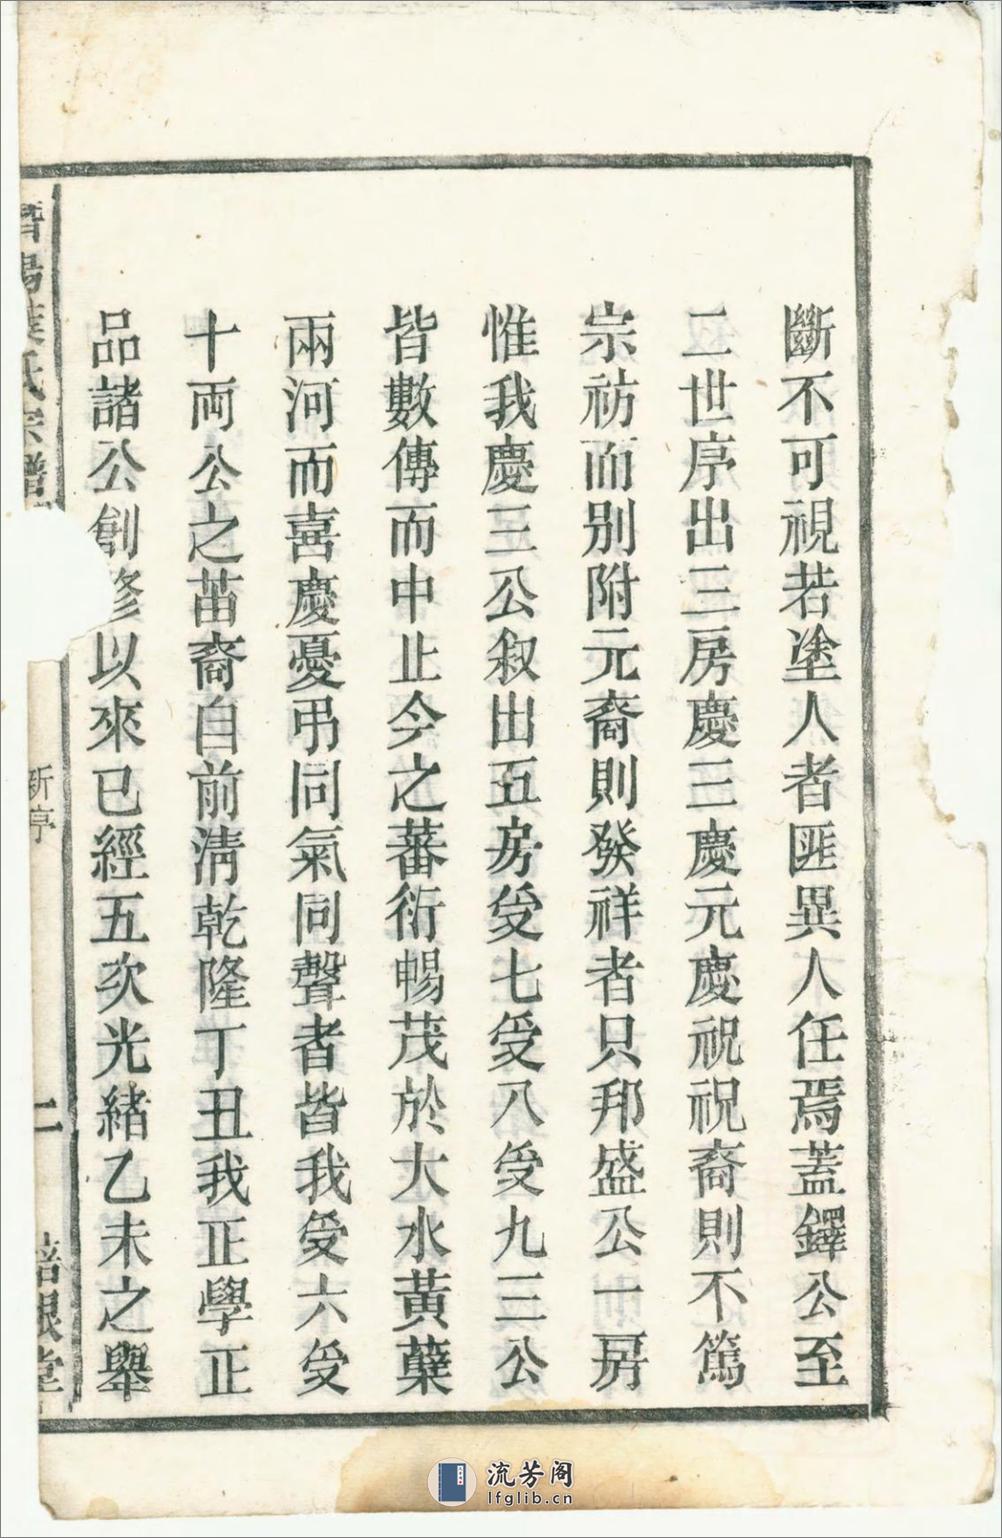 斷不可視若塗人者匪異人任焉蓋鐸公至
二世序出三房慶三慶元慶祝祝裔則不篤
宗祊而别附元裔則發祥者只邦盛公一房
惟我慶三公叙出五房受七受八受九三公
皆數傳而中止今之蕃衍暢茂於大水黃蘗
兩河而喜慶憂弔同氣同聲者皆我受六受
十両公之苗裔自前清乾隆丁丑我正學正
品諸公創修以來已經五次光緒乙未之舉
氏宗譜
新序
二
培根堂
流芳阁
lfglib.cn